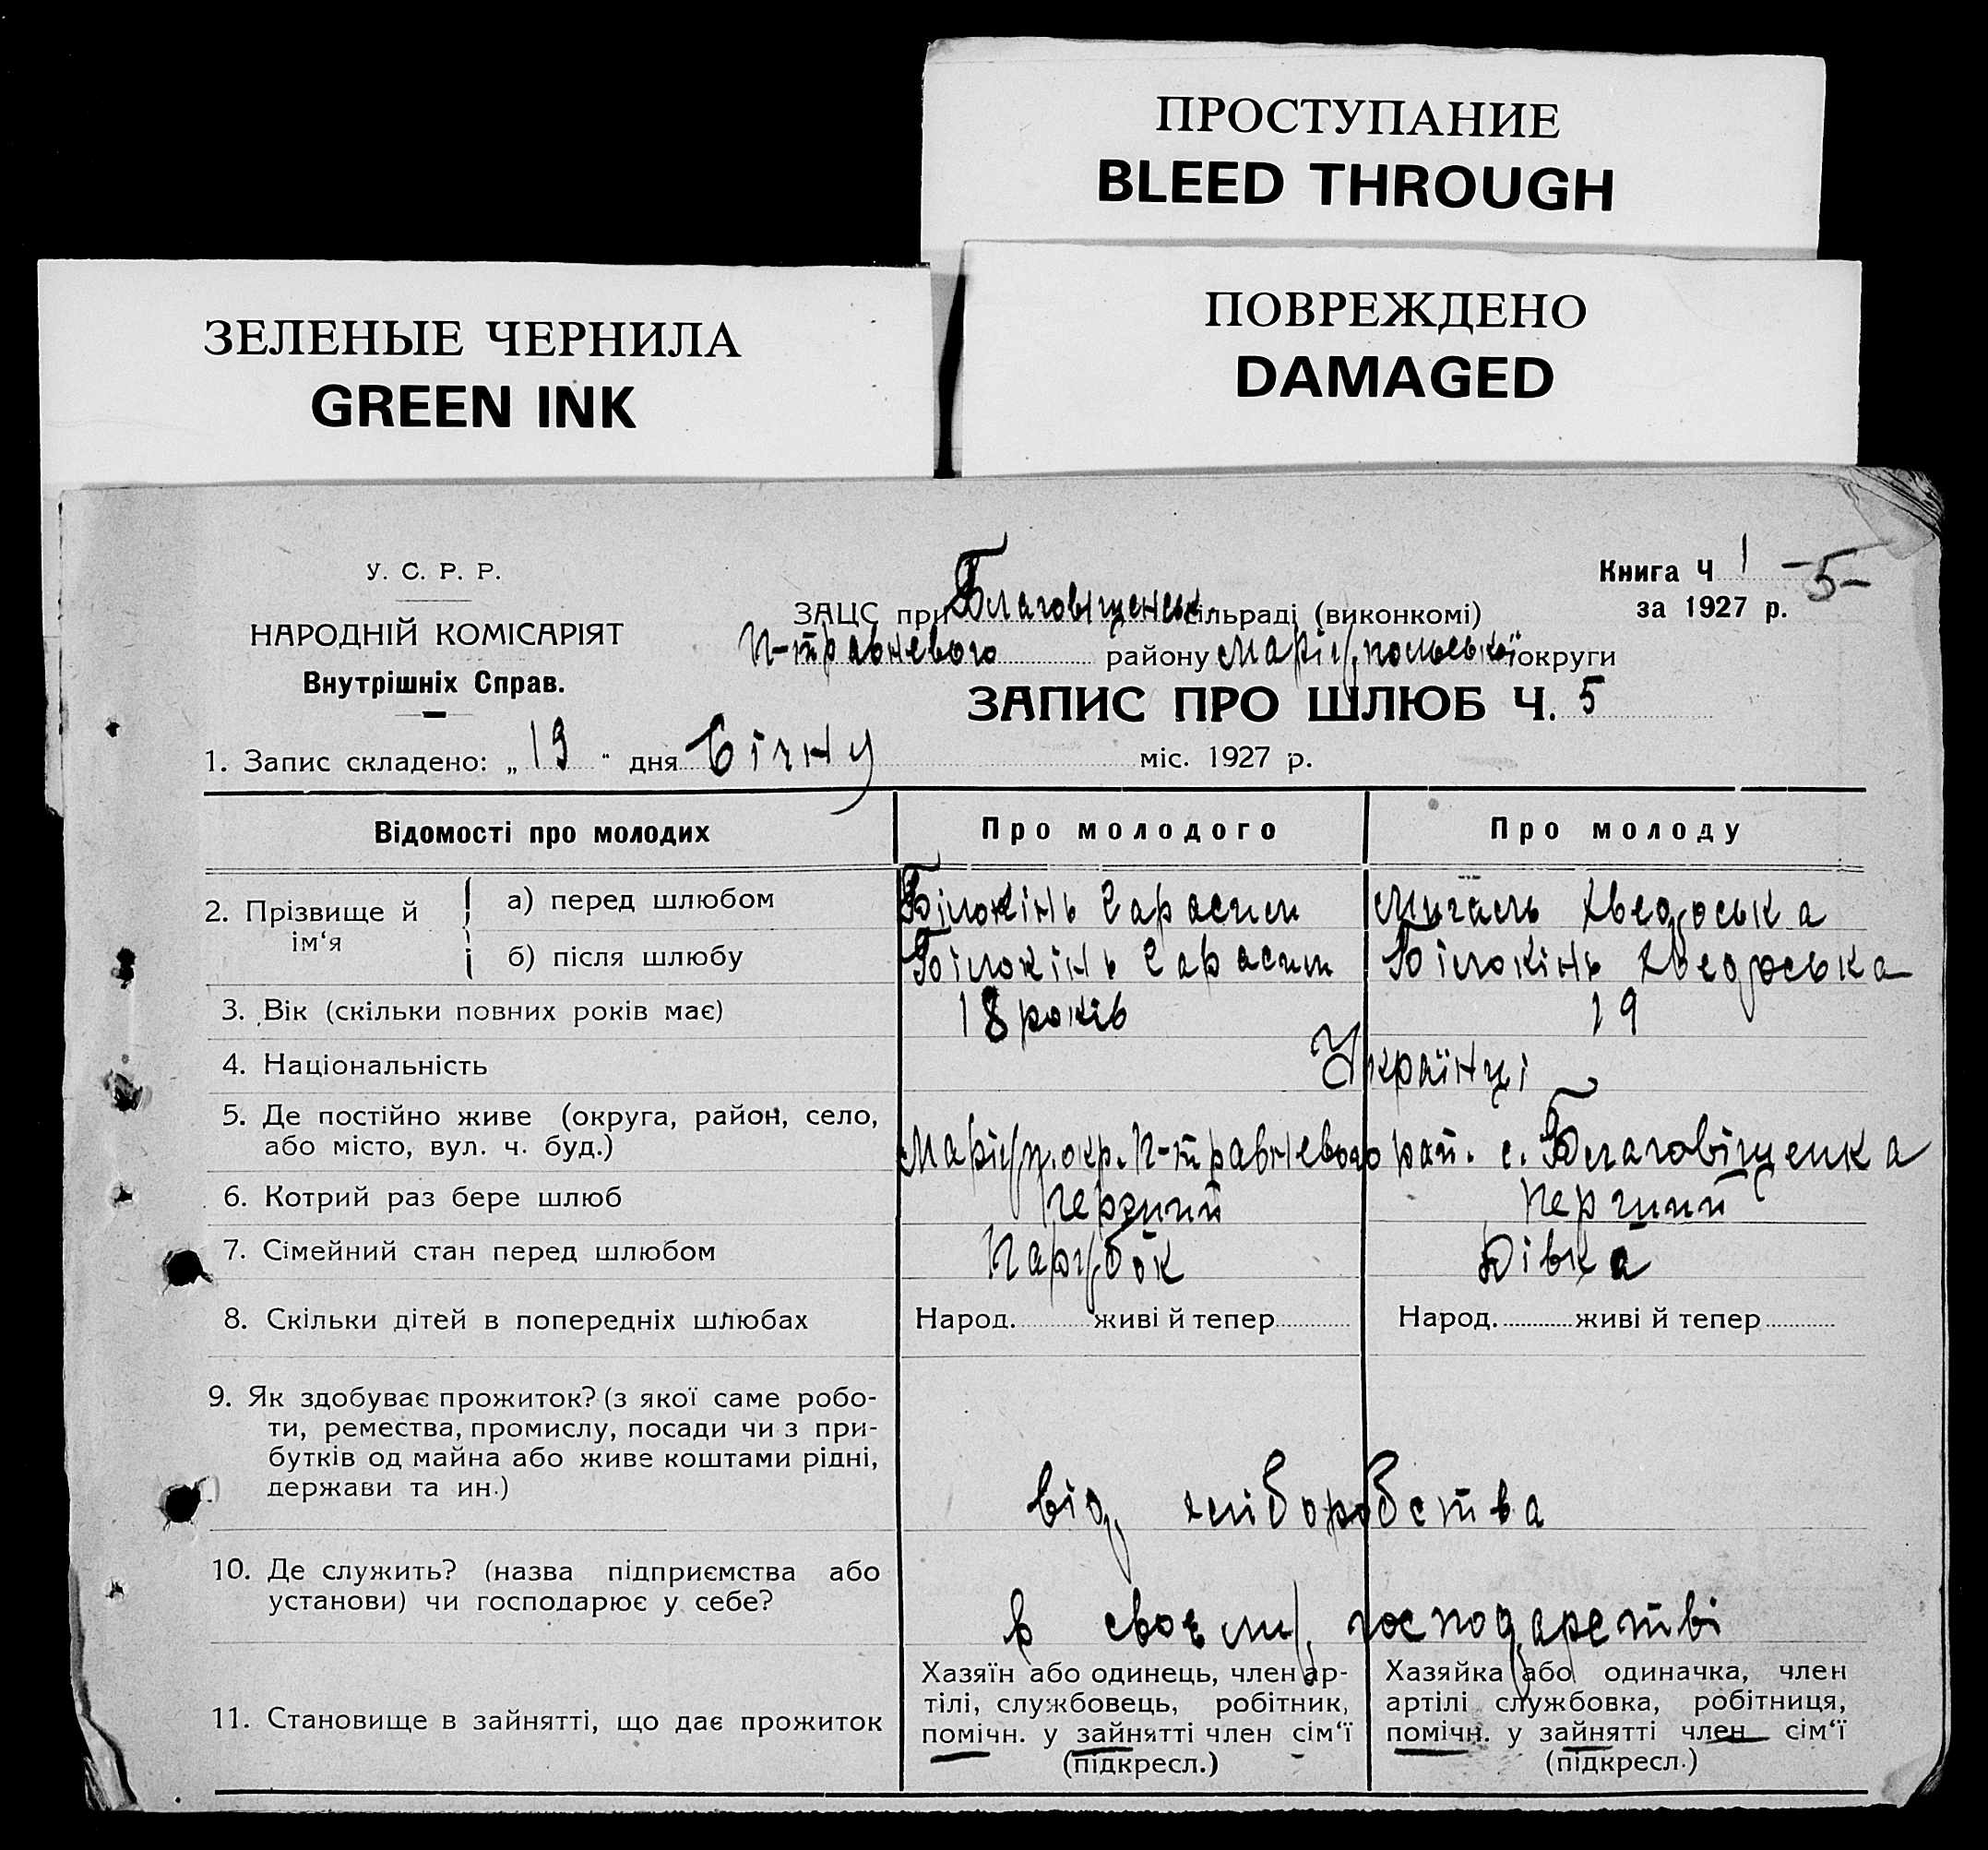 ПРОСТУПАНИЕ
BLEED THROUGH
ЗЕЛЕНЫЕ ЧЕРНИЛА
GREEN INK
ПОВРЕЖДЕНО
DAMAGED
У. С. Р. Р.
НАРОДНІЙ КОМІСАРІЯТ
Внутрішніх Справ.
Книга Ч 1 -5-
за 1927 р.
ЗАЦС при Благовіщенськ. сільраді (виконкомі)
П-травневого району Маріупольської округи
ЗАПИС ПРО ШЛЮБ Ч. 5
1. Запис складено: „ 19 " дня Січну міс. 1927 р.
Відомості про молодих Про молодого Про молоду
2. Прізвище й ім'я а) перед шлюбом Білокінь Гарасим Мигаль Хведоська
б) після шлюбу Білокінь Гарасим Білокінь Хведоська
3. Вік (скільки повних років має) 18 років 19
4. Національність Українці
5. Де постійно живе (округа, район, село,
або місто, вул. ч. буд.) Маріуп. окр. П-травневого рай. с. Благовіщенка
6. Котрий раз бере шлюб Перший Перший
7. Сімейний стан перед шлюбом Парубок Дівка
8. Скільки дітей в попередніх шлюбах Народ. живі й тепер Народ. живі й тепер
9. Як здобуває прожиток? (з якої саме робо-
ти, ремества, промислу, посади чи з при-
бутків од майна або живе коштами рідні,
держави та ин.)
від хліборобства
10. Де служить? (назва підприємства або
установи) чи господарює у себе?
в своєму господарстві
11. Становище в зайнятті, що дає прожиток
Хазяїн або одинець, член ар-
тілі, службовець, робітник,
помічн. у зайнятті член сім'ї
(підкресл.)
Хазяйка або одиначка, член
артілі службовка, робітниця,
помічн. у зайнятті член сім'ї
(підкресл.)